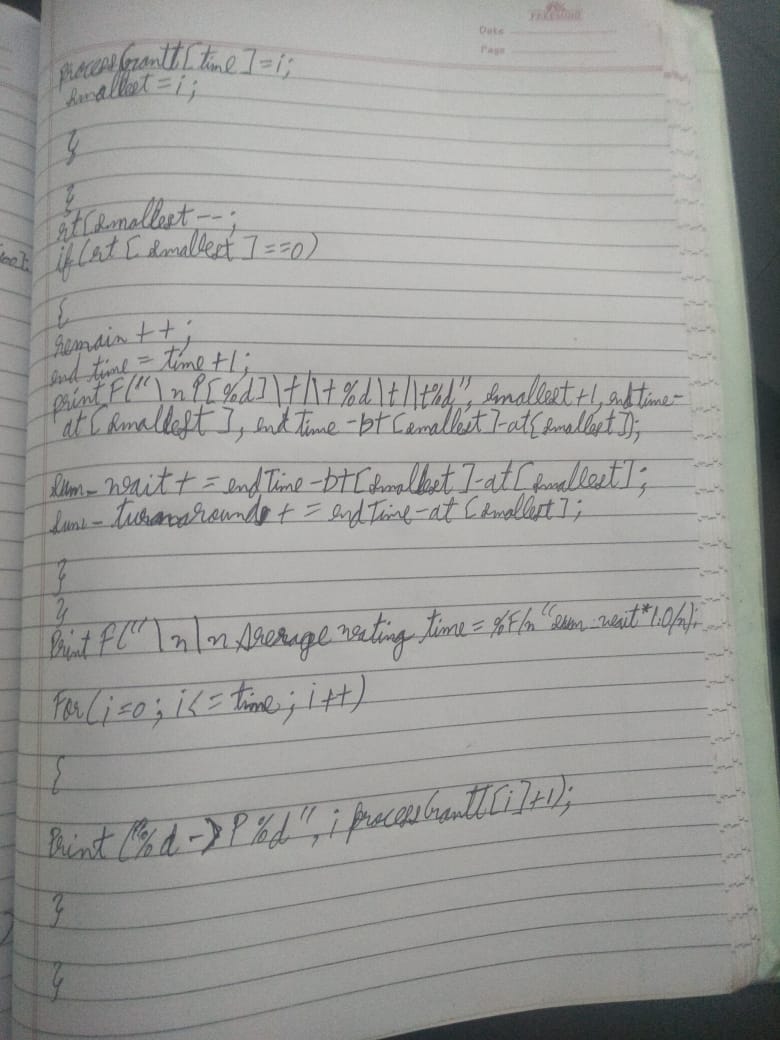 PARAMOUNT
Date
Page
processGrantt[time]=i;
smallest=i;
}
}
rt[smallest--;
if(rt[smallest]==0)
{
remain++;
end time = time+1;
printF("\n P[%d]\t|\t%d\t|\t%d", smallest+1, endtime-
at[smallest], end Time-bt[smallest]-at[smallest]);
sum_wait+=endTime-bt[smallest]-at[smallest];
sum_turnaround+=endTime-at[smallest];
}
}
Print F("\n\n Average wating time=%F/n" sum_wait*1.0/n);
For(i=0; i<=time; i++)
{
Print ("%d->P%d", i processGrantt[i]+1);
}
}